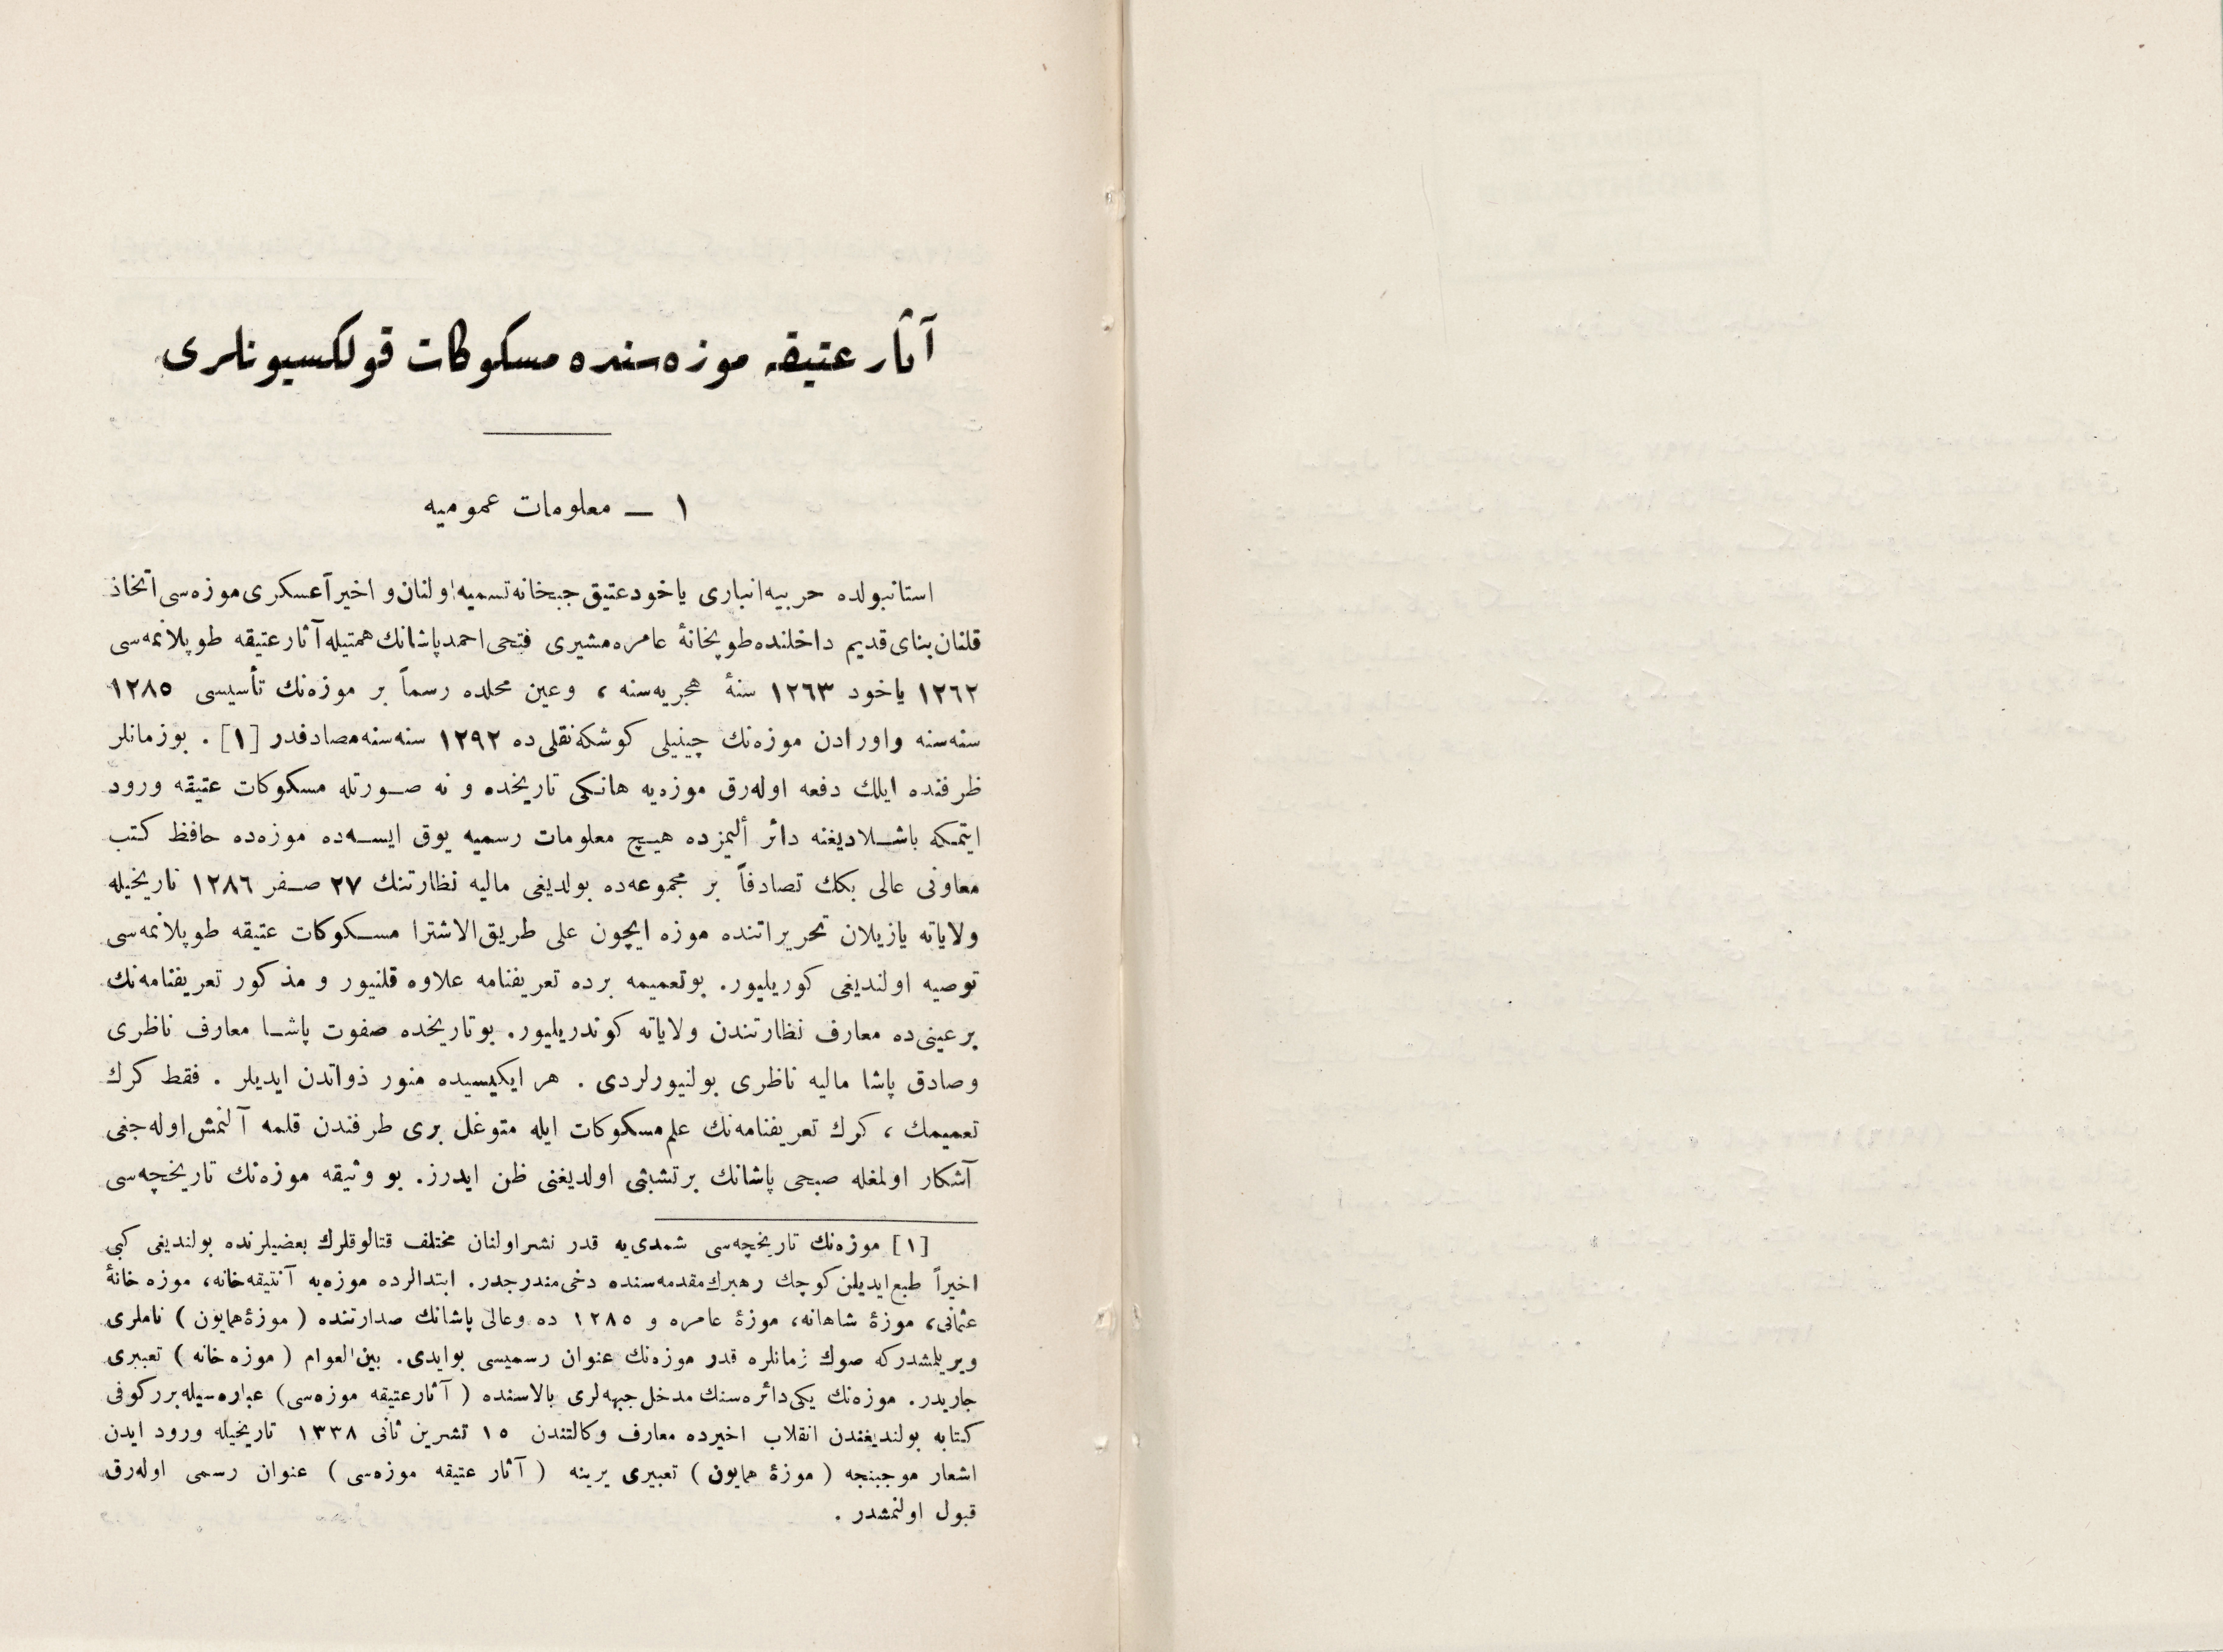 آثار عتيقه موزه‌سنده مسكوكات قولكسيونلرى
١ — معلومات عموميه
استانبولده حربيه انبارى ياخود عتيق جبخانه تسميه اولنان و اخيراً عسكرى موزه‌سى اتخاذ
قلنان بناى قديم داخلنده طوپخانهٔ عامره مشيرى فتحى احمد پاشانك همتيله آثار عتيقه طوپلانمه‌سى
١٢٦٢ ياخود ١٢٦٣ سنهٔ هجريه‌سنه ، وعين محلده رسماً بر موزه‌نك تأسيسى ١٢٨٥
سنه‌سنه واورادن موزه‌نك چينيلى كوشكه نقلى ده ١٢٩٢ سنه‌سنه مصادفدر [١] . بو زمانلر
ظرفنده ايلك دفعه اوله‌رق موزه‌يه هانكى تاريخده و نه صورتله مسكوكات عتيقه ورود
ايتمكه باشلاديغنه دائر أليمزده هيچ معلومات رسميه يوق ايسه‌ده موزه‌ده حافظ كتب
معاونى عالى بكك تصادفاً بر مجموعه‌ده بولديغى ماليه نظارتنك ٢٧ صفر ١٢٨٦ تاريخيله
ولاياته يازيلان تحريراتنده موزه ايچون على طريق‌الاشترا مسكوكات عتيقه طوپلانمه‌سى
توصيه اولنديغى كوريليور. بوتعميمه برده تعريفنامه علاوه قلنيور و مذكور تعريفنامه‌نك
برعينى‌ده معارف نظارتندن ولاياته كوندريليور. بوتاريخده صفوت پاشا معارف ناظرى
وصادق پاشا ماليه ناظرى بولنيورلردى . هر ايكيسيده منور ذواتدن ايديلر . فقط كرك
تعميمك ، كرك تعريفنامه‌نك علم مسكوكات ايله متوغل برى طرفندن قلمه آلنمش اوله‌جغى
آشكار اولمغله صبحى پاشانك برتشبثى اولديغنى ظن ايدرز. بو وثيقه موزه‌نك تاريخچه‌سى
[١] موزه‌نك تاريخچه‌سى شمدى‌يه قدر نشر اولنان مختلف قتالوقلرك بعضيلرنده بولنديغى كبى
اخيراً طبع ايديلن كوچك رهبرك مقدمه‌سنده دخى مندرجدر. ابتدالرده موزه‌يه آنتيقه‌خانه، موزه خانهٔ
عثمانى، موزهٔ شاهانه، موزهٔ عامره و ١٢٨٥ ده وعالى پاشانك صدارتنده ( موزهٔ همايون ) ناملرى
ويريلمشدركه صوك زمانلره قدر موزه‌نك عنوان رسميسى بوايدى. بين‌العوام ( موزه خانه ) تعبيرى
جاريدر. موزه‌نك يكى دائره‌سنك مدخل جبهه‌لرى بالاسنده ( آثار عتيقه موزه‌سى ) عباره‌سيله برركوفى
كتابه بولنديغندن انقلاب اخيرده معارف وكالتندن ١٥ تشرين ثانى ١٣٣٨ تاريخيله ورود ايدن
اشعار موجبنجه ( موزهٔ همايون ) تعبيرى يرينه ( آثار عتيقه موزه‌سى ) عنوان رسمى اوله‌رق
قبول اولنمشدر .